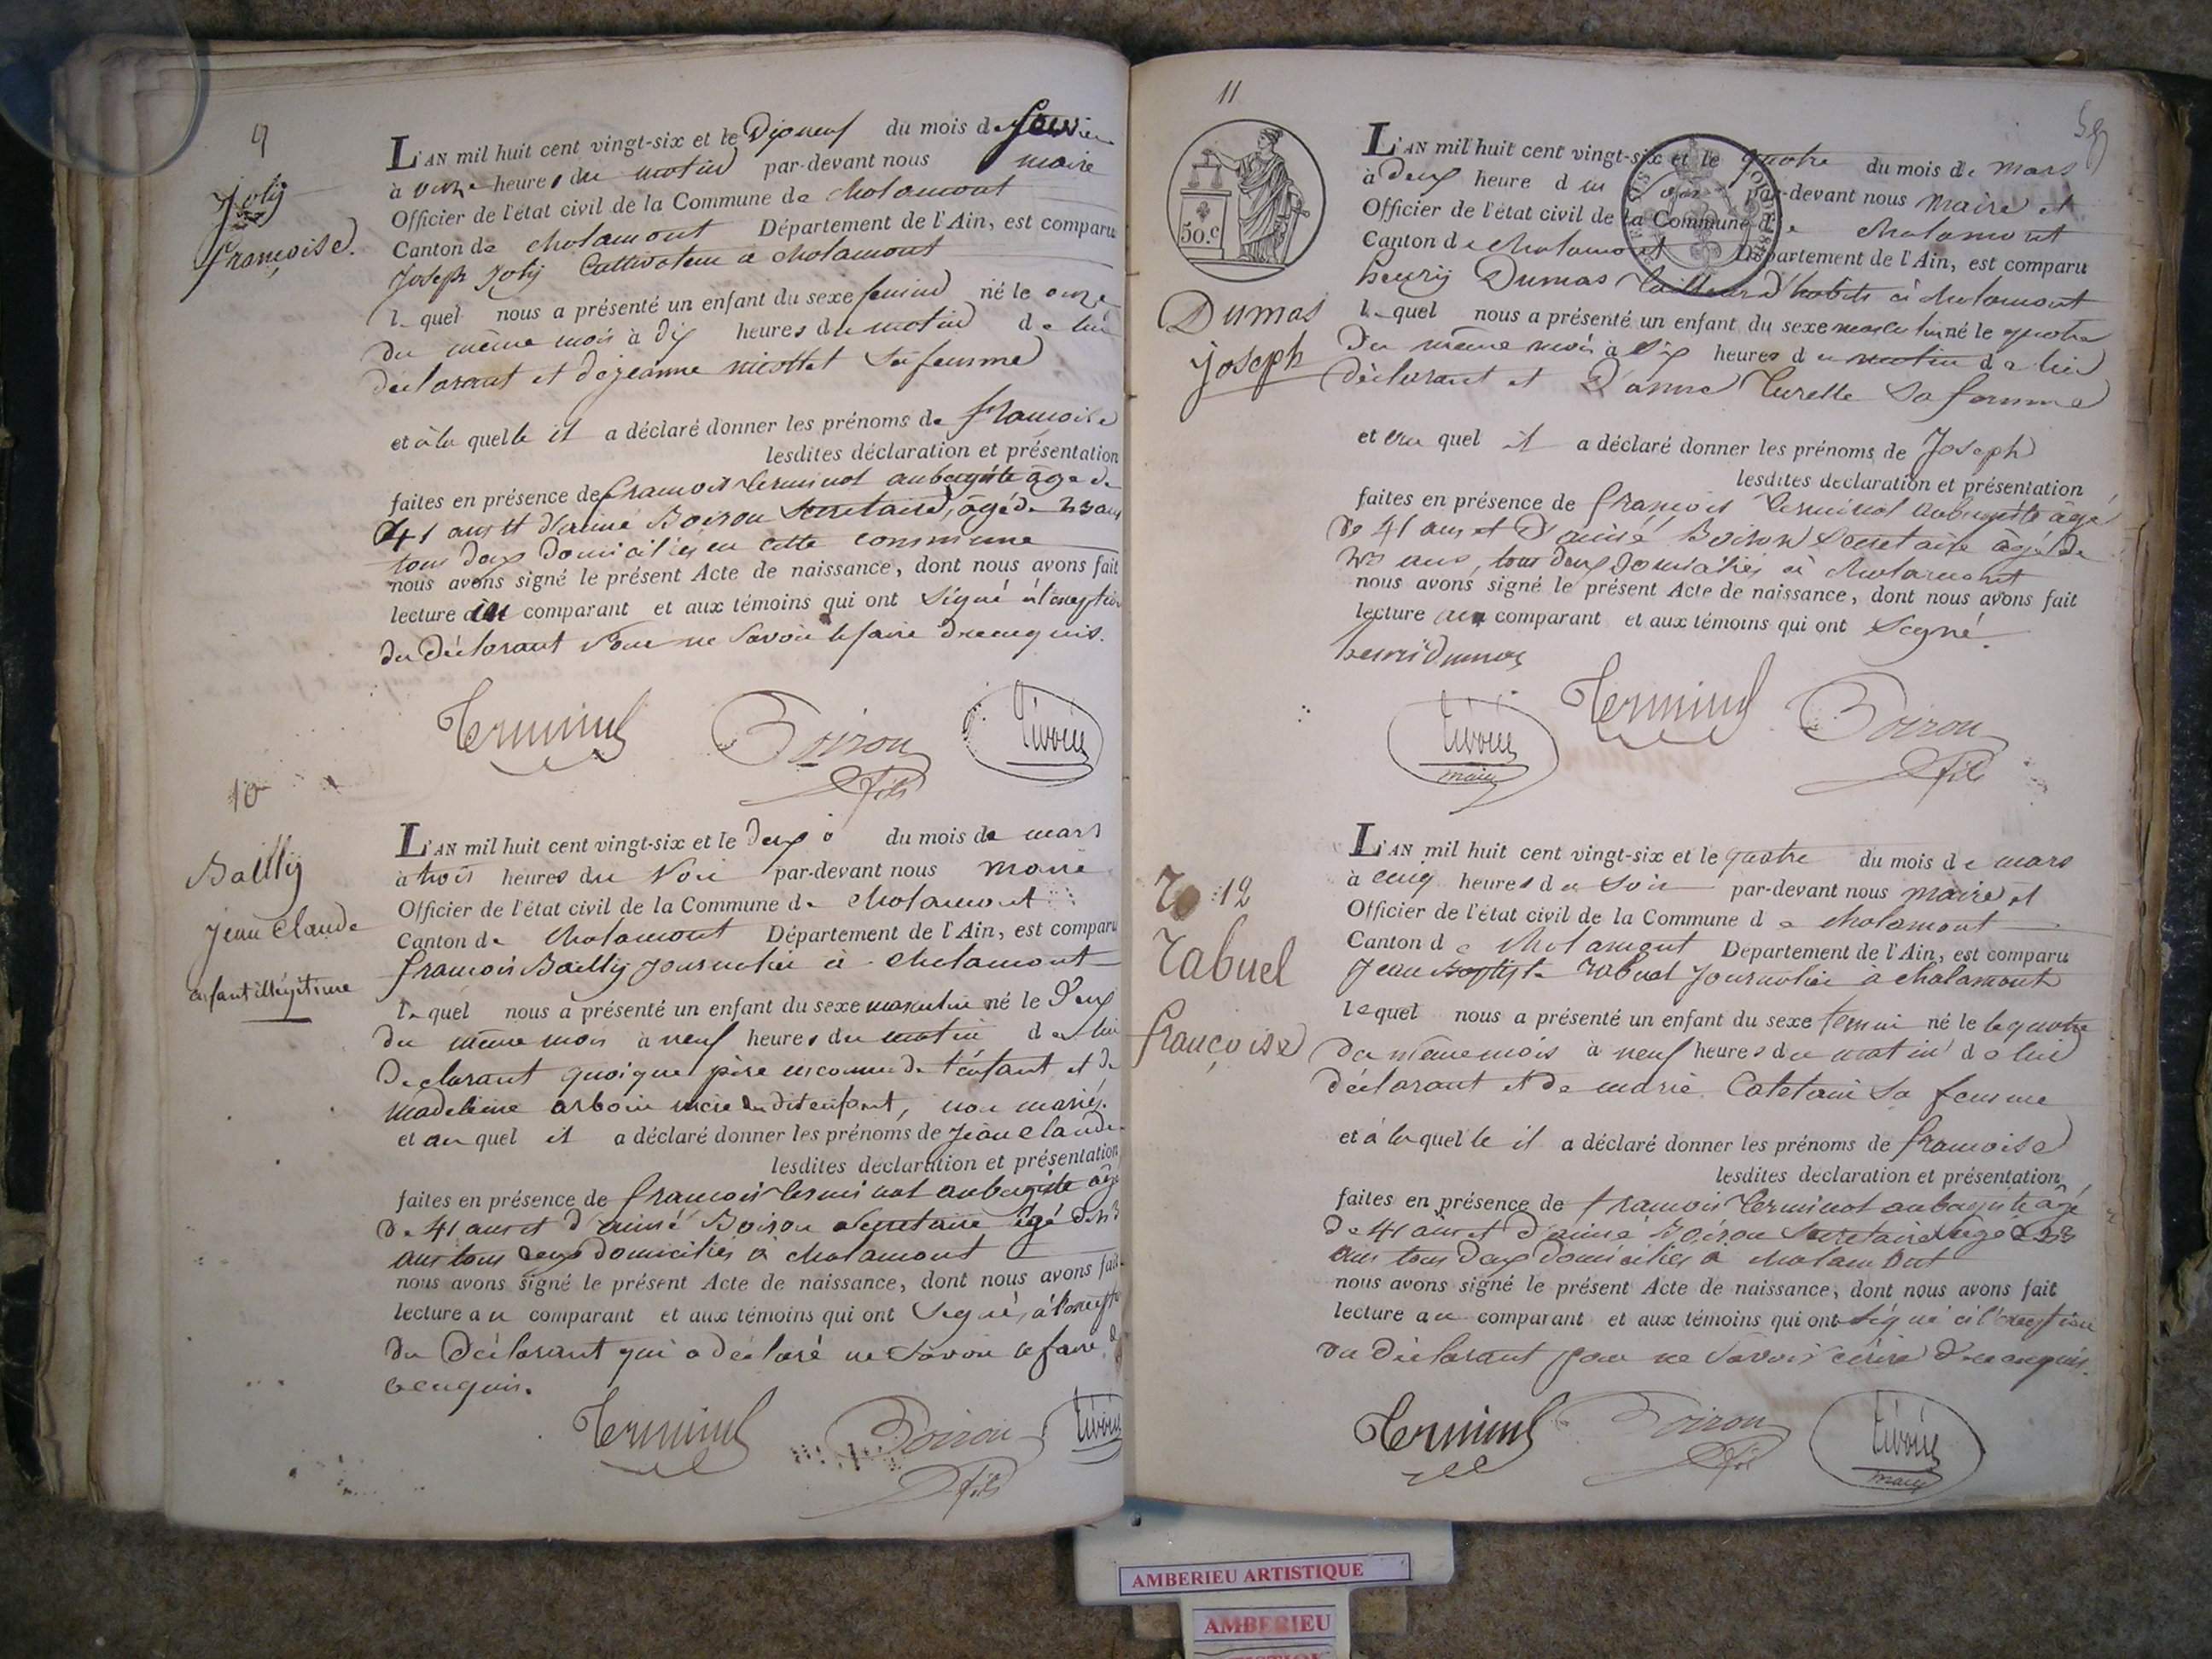 9
Joly
françoise.
L'AN mil huit cent vingt-six et le Dix neuf du mois de février
à onze heures du matin par-devant nous maire
Officier de l'état civil de la Commune de chalamont
Canton de chalamont Département de l'Ain, est comparu
Joseph Joly Cultivateur a chalamont
le quel nous a présenté un enfant du sexe feminin né le onze
du même mois à dix heures du matin de lui
declarant et de jeanne nicollet sa femme
et à la quelle il a déclaré donner les prénoms de françoise
lesdites déclaration et présentation
faites en présence de françois Terminal aubergiste age de
41 ans et d'aimé Boiron Secretaire, âgé de 23 ans
tous deux domiciliés en cette commune
nous avons signé le présent Acte de naissance, dont nous avons fait
lecture au comparant et aux témoins qui ont signé à l'exception
du déclarant pour ne savoir le faire de ce enquis.
Terminal Boiron fils
10
Bailly
jean Claude
enfant illégitime
L'AN mil huit cent vingt-six et le deux du mois de mars
à trois heures du soir par-devant nous maire
Officier de l'état civil de la Commune de chalamont
Canton de chalamont Département de l'Ain, est comparu
françois Bailly journalier à chalamont
le quel nous a présenté un enfant du sexe masculin né le deux
du même mois à neuf heures du matin de lui
declarant quoique père inconnu de l'enfant et de
madeleine arboin mère du dit enfant, non mariés.
et au quel il a déclaré donner les prénoms de jean claude
lesdites déclaration et présentation
faites en présence de françois Terminal aubergiste âgé
de 41 ans et d'aimé Boiron secretaire âgé de 23
ans tous deux domiciliés à chalamont
nous avons signé le présent Acte de naissance, dont nous avons fait
lecture au comparant et aux témoins qui ont signé, à l'exception
du déclarant qui a déclaré ne savoir le faire de
ce enquis.
Terminal Boiron fils
11
50.c
Dumas
joseph
L'AN mil huit cent vingt-six et le quatre du mois de mars
à deux heure du soir par-devant nous maire et
Officier de l'état civil de la Commune de chalamont
Canton de chalamont Département de l'Ain, est comparu
henry Dumas tailleur d'habits à chalamont
le quel nous a présenté un enfant du sexe masculin né le quatre
du même mois à six heures du matin de lui
déclarant et d'anne Curette sa femme
et au quel il a déclaré donner les prénoms de Joseph
lesdites déclaration et présentation
faites en présence de françois Terminal aubergiste âgé
de 41 ans et d'aimé Boiron Secretaire âgé de
23 ans, tous deux domiciliés à chalamont
nous avons signé le présent Acte de naissance, dont nous avons fait
lecture au comparant et aux témoins qui ont signé.
henri dumas
Terminal Boiron fils
maire
12
Rabuel
françoise
L'AN mil huit cent vingt-six et le quatre du mois de mars
à cinq heures du soir par-devant nous maire et
Officier de l'état civil de la Commune de chalamont
Canton de chalamont Département de l'Ain, est comparu
jean Baptiste Rabuel journalier à chalamont
le quel nous a présenté un enfant du sexe feminin né le le quatre
du même mois à neuf heures du matin de lui
déclarant et de marie Catelain sa femme
et à la quelle il a déclaré donner les prénoms de françoise
lesdites déclaration et présentation
faites en présence de françois Terminal aubergiste âgé
de 41 ans et d'aimé Boiron secretaire âgé de 23
ans tous deux domiciliés à chalamont
nous avons signé le présent Acte de naissance, dont nous avons fait
lecture au comparant et aux témoins qui ont signé à l'exception
du déclarant pour ne savoir écrire de ce enquis.
Terminal Boiron fils
maire
AMBERIEU ARTISTIQUE
AMBERIEU